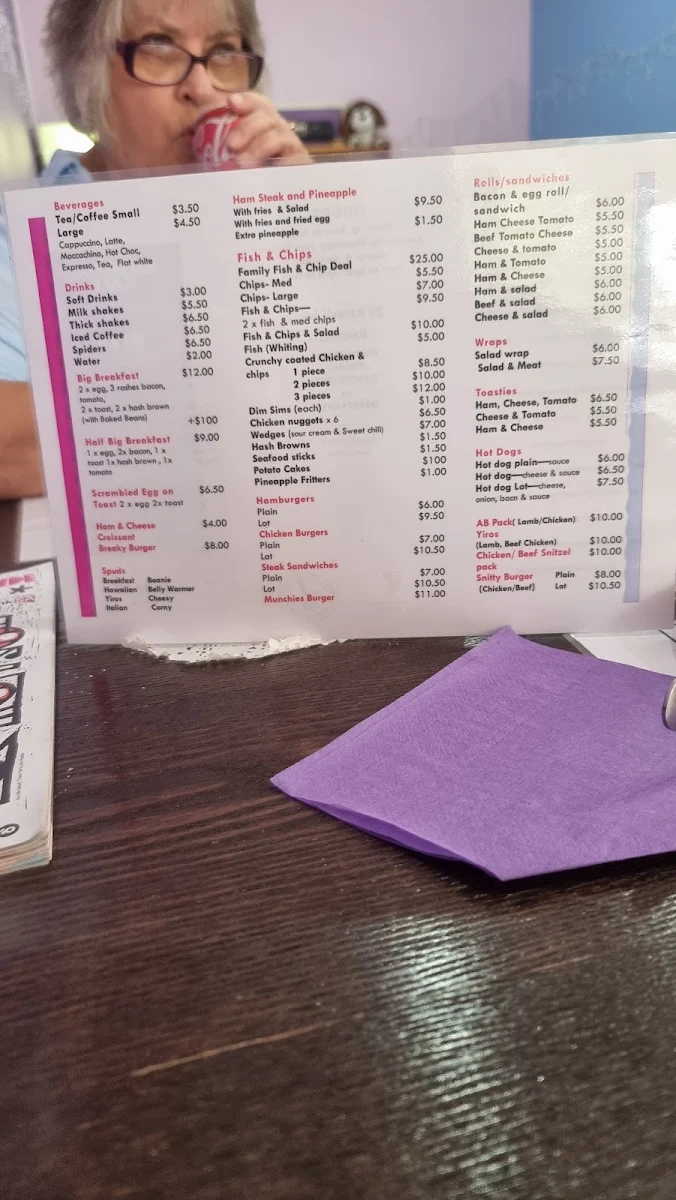 Beverages
Tea/Coffee Small $3.50
Large $4.50
Cappuccino, Latte,
Mocchachino, Hot Choc,
Expresso, Tea, Flat white
Drinks
Soft Drinks $3.00
Milk shakes $5.50
Thick shakes $6.50
Iced Coffee $6.50
Spiders $6.50
Water $2.00
Big Breakfast $12.00
2 x egg, 3 rashes bacon,
tomato,
2 x toast, 2 x hash brown
(with Baked Beans) +$100
Half Big Breakfast $9.00
1 x egg, 2x bacon, 1 x
toast 1x hash brown , 1x
tomato
Scrambled Egg on $6.50
Toast 2 x egg 2x toast
Ham & Cheese $4.00
Croissant
Breaky Burger $8.00
Spuds
Breakfast Beanie
Hawaiian Belly Warmer
Yiros Cheesy
Italian Corny
Ham Steak and Pineapple
With fries & Salad $9.50
With fries and fried egg
Extra pineapple $1.50
Fish & Chips
Family Fish & Chip Deal $25.00
Chips- Med $5.50
Chips- Large $7.00
Fish & Chips— $9.50
2 x fish & med chips
Fish & Chips & Salad $10.00
Fish (Whiting) $5.00
Crunchy coated Chicken &
chips 1 piece $8.50
2 pieces $10.00
3 pieces $12.00
Dim Sims (each) $1.00
Chicken nuggets x 6 $6.50
Wedges (sour cream & Sweet chili) $7.00
Hash Browns $1.50
Seafood sticks $1.50
Potato Cakes $100
Pineapple Fritters $1.00
Hamburgers
Plain $6.00
Lot $9.50
Chicken Burgers
Plain $7.00
Lot $10.50
Steak Sandwiches
Plain $7.00
Lot $10.50
Munchies Burger $11.00
Rolls/sandwiches
Bacon & egg roll/
sandwich $6.00
Ham Cheese Tomato $5.50
Beef Tomato Cheese $5.50
Cheese & tomato $5.00
Ham & Tomato $5.00
Ham & Cheese $5.00
Ham & salad $6.00
Beef & salad $6.00
Cheese & salad $6.00
Wraps
Salad wrap $6.00
Salad & Meat $7.50
Toasties
Ham, Cheese, Tomato $6.50
Cheese & Tomato $5.50
Ham & Cheese $5.50
Hot Dogs
Hot dog plain—sauce $6.00
Hot dog—cheese & sauce $6.50
Hot dog Lot—cheese, $7.50
onion, bacn & sauce
AB Pack( Lamb/Chicken) $10.00
Yiros
(Lamb, Beef Chicken) $10.00
Chicken/ Beef Snitzel $10.00
pack
Snitty Burger Plain $8.00
(Chicken/Beef) Lot $10.50